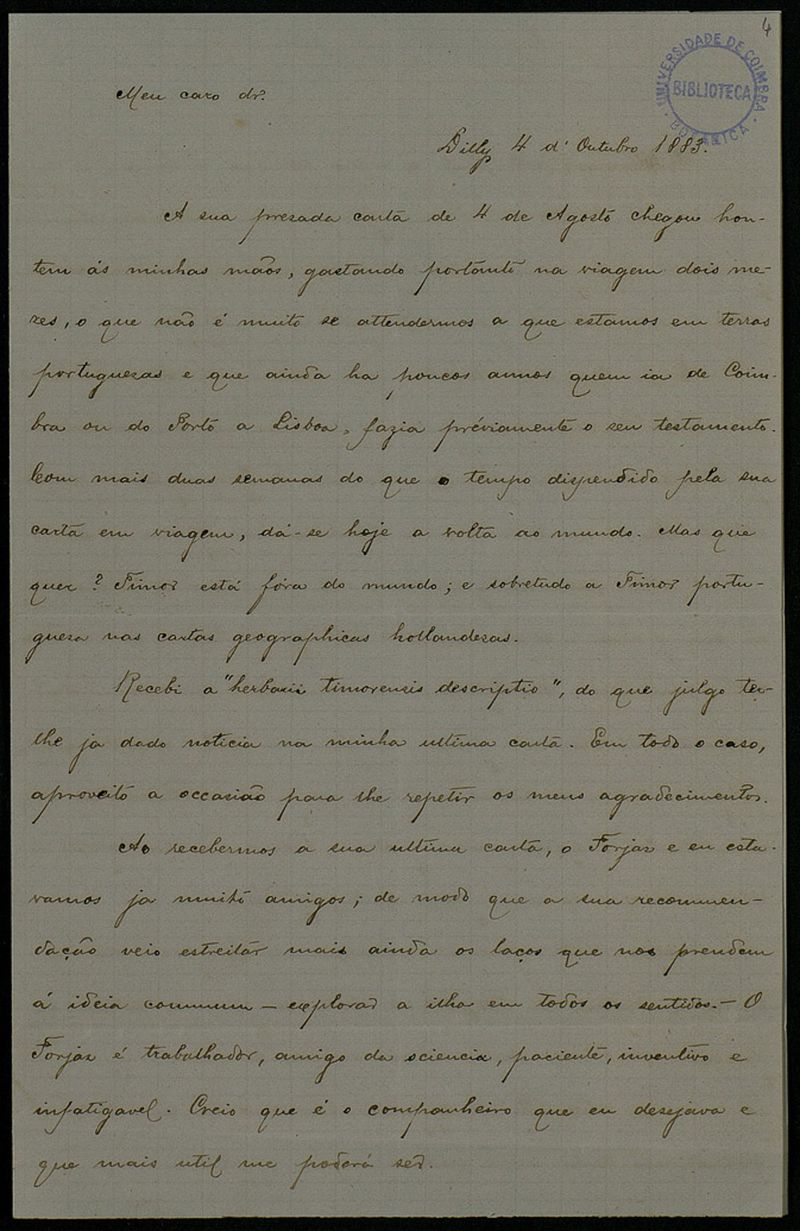 4
UNIVERSIDADE DE COIMBRA
BIBLIOTECA
BOTANICA
Meu caro dr.
Dilly 4 d'Outubro 1883.
A sua presada carta de 4 de Agosto chegou hon-
tem ás minhas mãos, gastando portanto na viagem dois me-
zes, o que não é muito se attendermos a que estamos em terras
portuguezas e que ainda ha poucos annos quem ia de Coim-
bra ou do Porto a Lisboa, fazia préviamente o seu testamento.
Com mais duas semanas do que o tempo dispendido pela sua
carta em viagem, dá-se hoje a volta ao mundo. Mas que
quer? Timor está fóra do mundo; e sobretudo a Timor portu-
gueza nas cartas geographicas hollandezas.
Recebi a "herbarii timorensis descriptio", do que julgo ter-
lhe ja dado noticia na minha ultima carta. Em todo o caso,
aproveito a occasião para lhe repetir os meus agradecimentos.
Ao recebermos a sua ultima carta, o Forjaz e eu esta-
vamos ja muito amigos; de modo que a sua recommen-
dação veio estreitar mais ainda os laços que nos prendem
á ideia commum — explorar a ilha em todos os sentidos. — O
Forjaz é trabalhador, amigo da sciencia, paciente, inventivo e
infatigavel. Creio que é o companheiro que eu desejava e
que mais util me poderá ser.